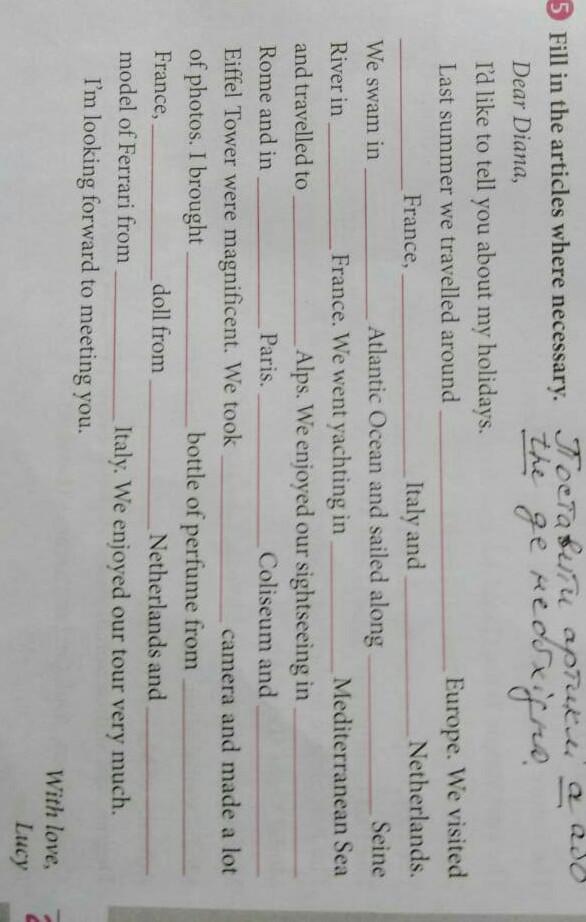 5 Fill in the articles where necessary.
Поставити артиклі a або
the де необхідно.
Dear Diana,
I'd like to tell you about my holidays.
Last summer we travelled around ______ Europe. We visited
______ France, ______ Italy and ______ Netherlands.
We swam in ______ Atlantic Ocean and sailed along ______ Seine
River in ______ France. We went yachting in ______ Mediterranean Sea
and travelled to ______ Alps. We enjoyed our sightseeing in ______
Rome and in ______ Paris. ______ Coliseum and ______
Eiffel Tower were magnificent. We took ______ camera and made a lot
of photos. I brought ______ bottle of perfume from ______
France, ______ doll from ______ Netherlands and ______
model of Ferrari from ______ Italy. We enjoyed our tour very much.
I'm looking forward to meeting you.
With love,
Lucy